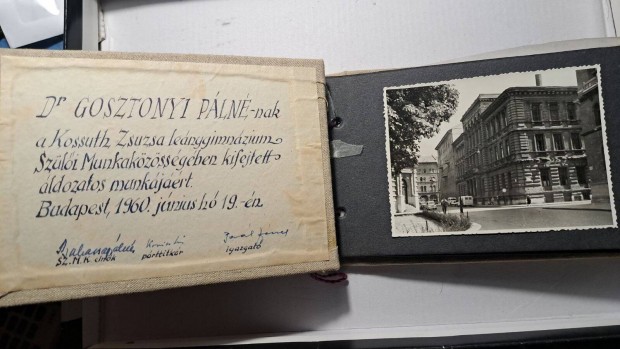 Dr GOSZTONYI PÁLNÉ-nak
a Kossuth Zsuzsa leánygimnázium
Szülői Munkaközösségében kifejtett
áldozatos munkájáért.
Budapest, 1960. junius hó 19.-én.
SZ.M.K. elnök párttitkár igazgató